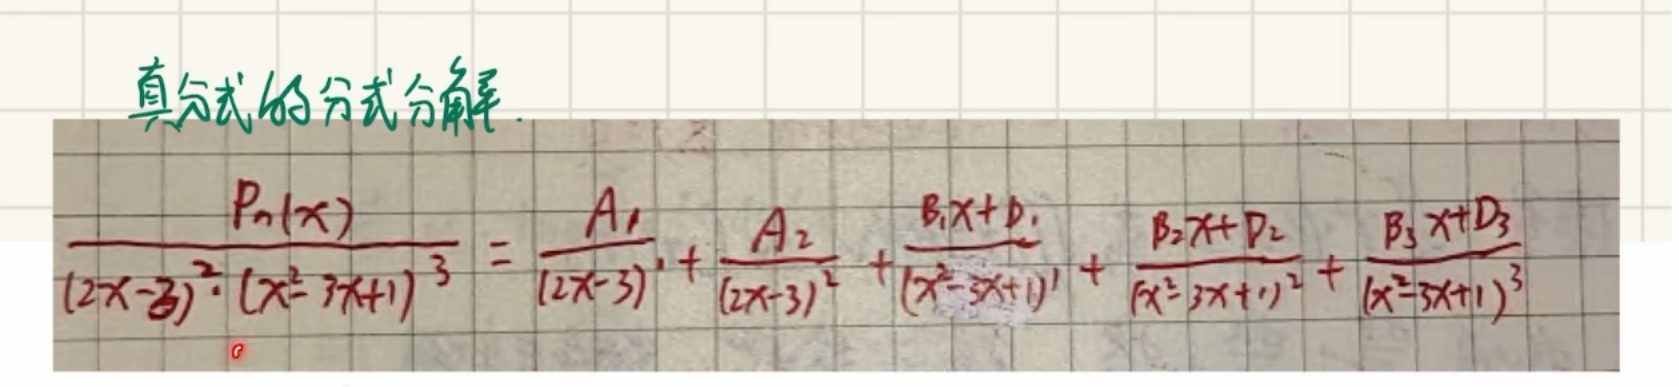 真分式的分式分解.
Pn(x) / (2x-3)²·(x²-3x+1)³ = A₁ / (2x-3)¹ + A₂ / (2x-3)² + B₁x+D₁ / (x²-3x+1)¹ + B₂x+D₂ / (x²-3x+1)² + B₃x+D₃ / (x²-3x+1)³